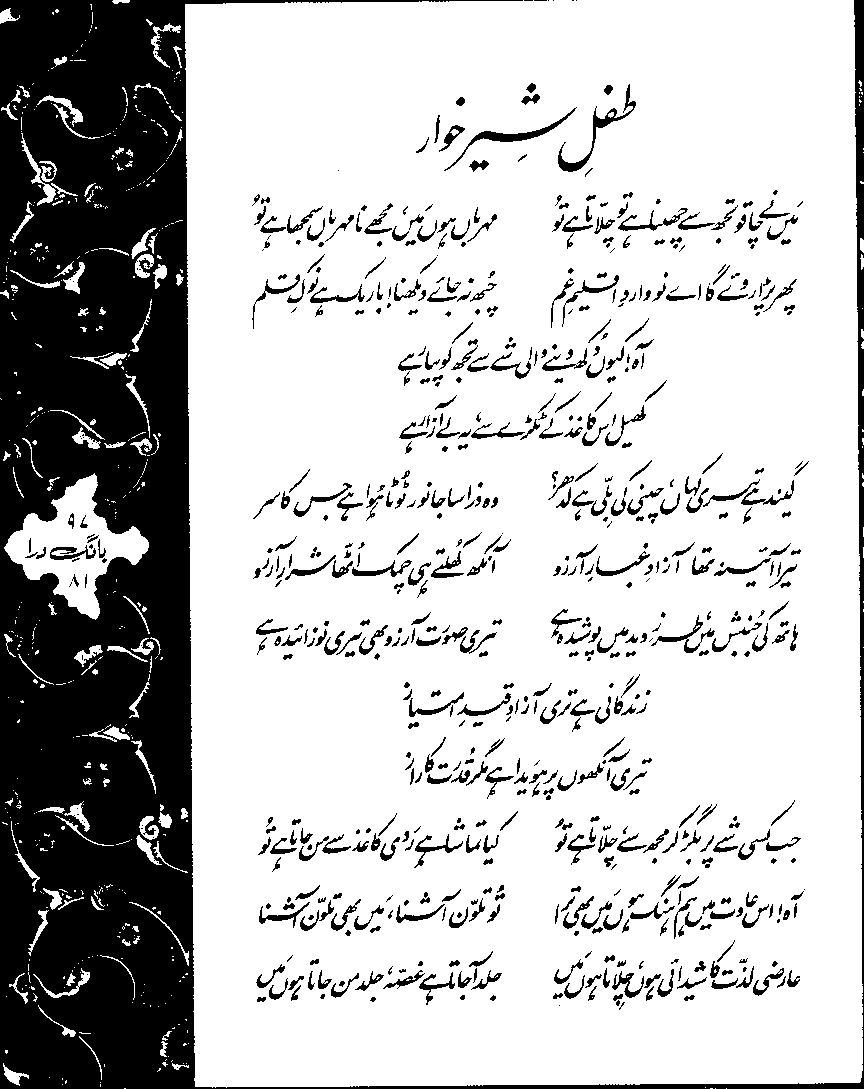 طفلِ شیر خوار
مَیں نے چاقو تجھ سے چھینا ہے تو چِلّاتا ہے تُو مہرباں ہوں مَیں، مجھے نا مہرباں سمجھا ہے تُو
پھر پڑا روئے گا اے نوواردِ اقلیمِ غم چُبھ نہ جائے دیکھنا! باریک ہے نوکِ قلم
آہ! کیوں دُکھ دینے والی شے سے تجھ کو پیار ہے
کھیل اس کاغذ کے ٹکڑے سے، یہ بے آزار ہے
گیند ہے تیری کہاں، چینی کی بِلّی ہے کدھر؟ وہ ذرا سا جانور ٹُوٹا ہُوا ہے جس کا سر
تیرا آئینہ تھا آزادِ غبارِ آرزو آنکھ کھُلتے ہی چمک اُٹھّا شرارِ آرزو
ہاتھ کی جُنبش میں، طرزِ دید میں پوشیدہ ہے تیری صورت آرزو بھی تیری نوزائیدہ ہے
زندگانی ہے تری آزادِ قیدِ امتیاز
تیری آنکھوں پر ہوَیدا ہے مگر قُدرت کا راز
جب کسی شے پر بگڑ کر مجھ سے، چِلّاتا ہے تُو کیا تماشا ہے رَدی کاغذ سے من جاتا ہے تُو
آہ! اس عادت میں ہم آہنگ ہوں مَیں بھی ترا تُو تلوّن آشنا، مَیں بھی تلوّن آشنا
عارضی لذّت کا شیدائی ہوں، چِلّاتا ہوں مَیں جلد آ جاتا ہے غصّہ، جلد من جاتا ہوں مَیں
۹۷
بانگِ درا
۸۱